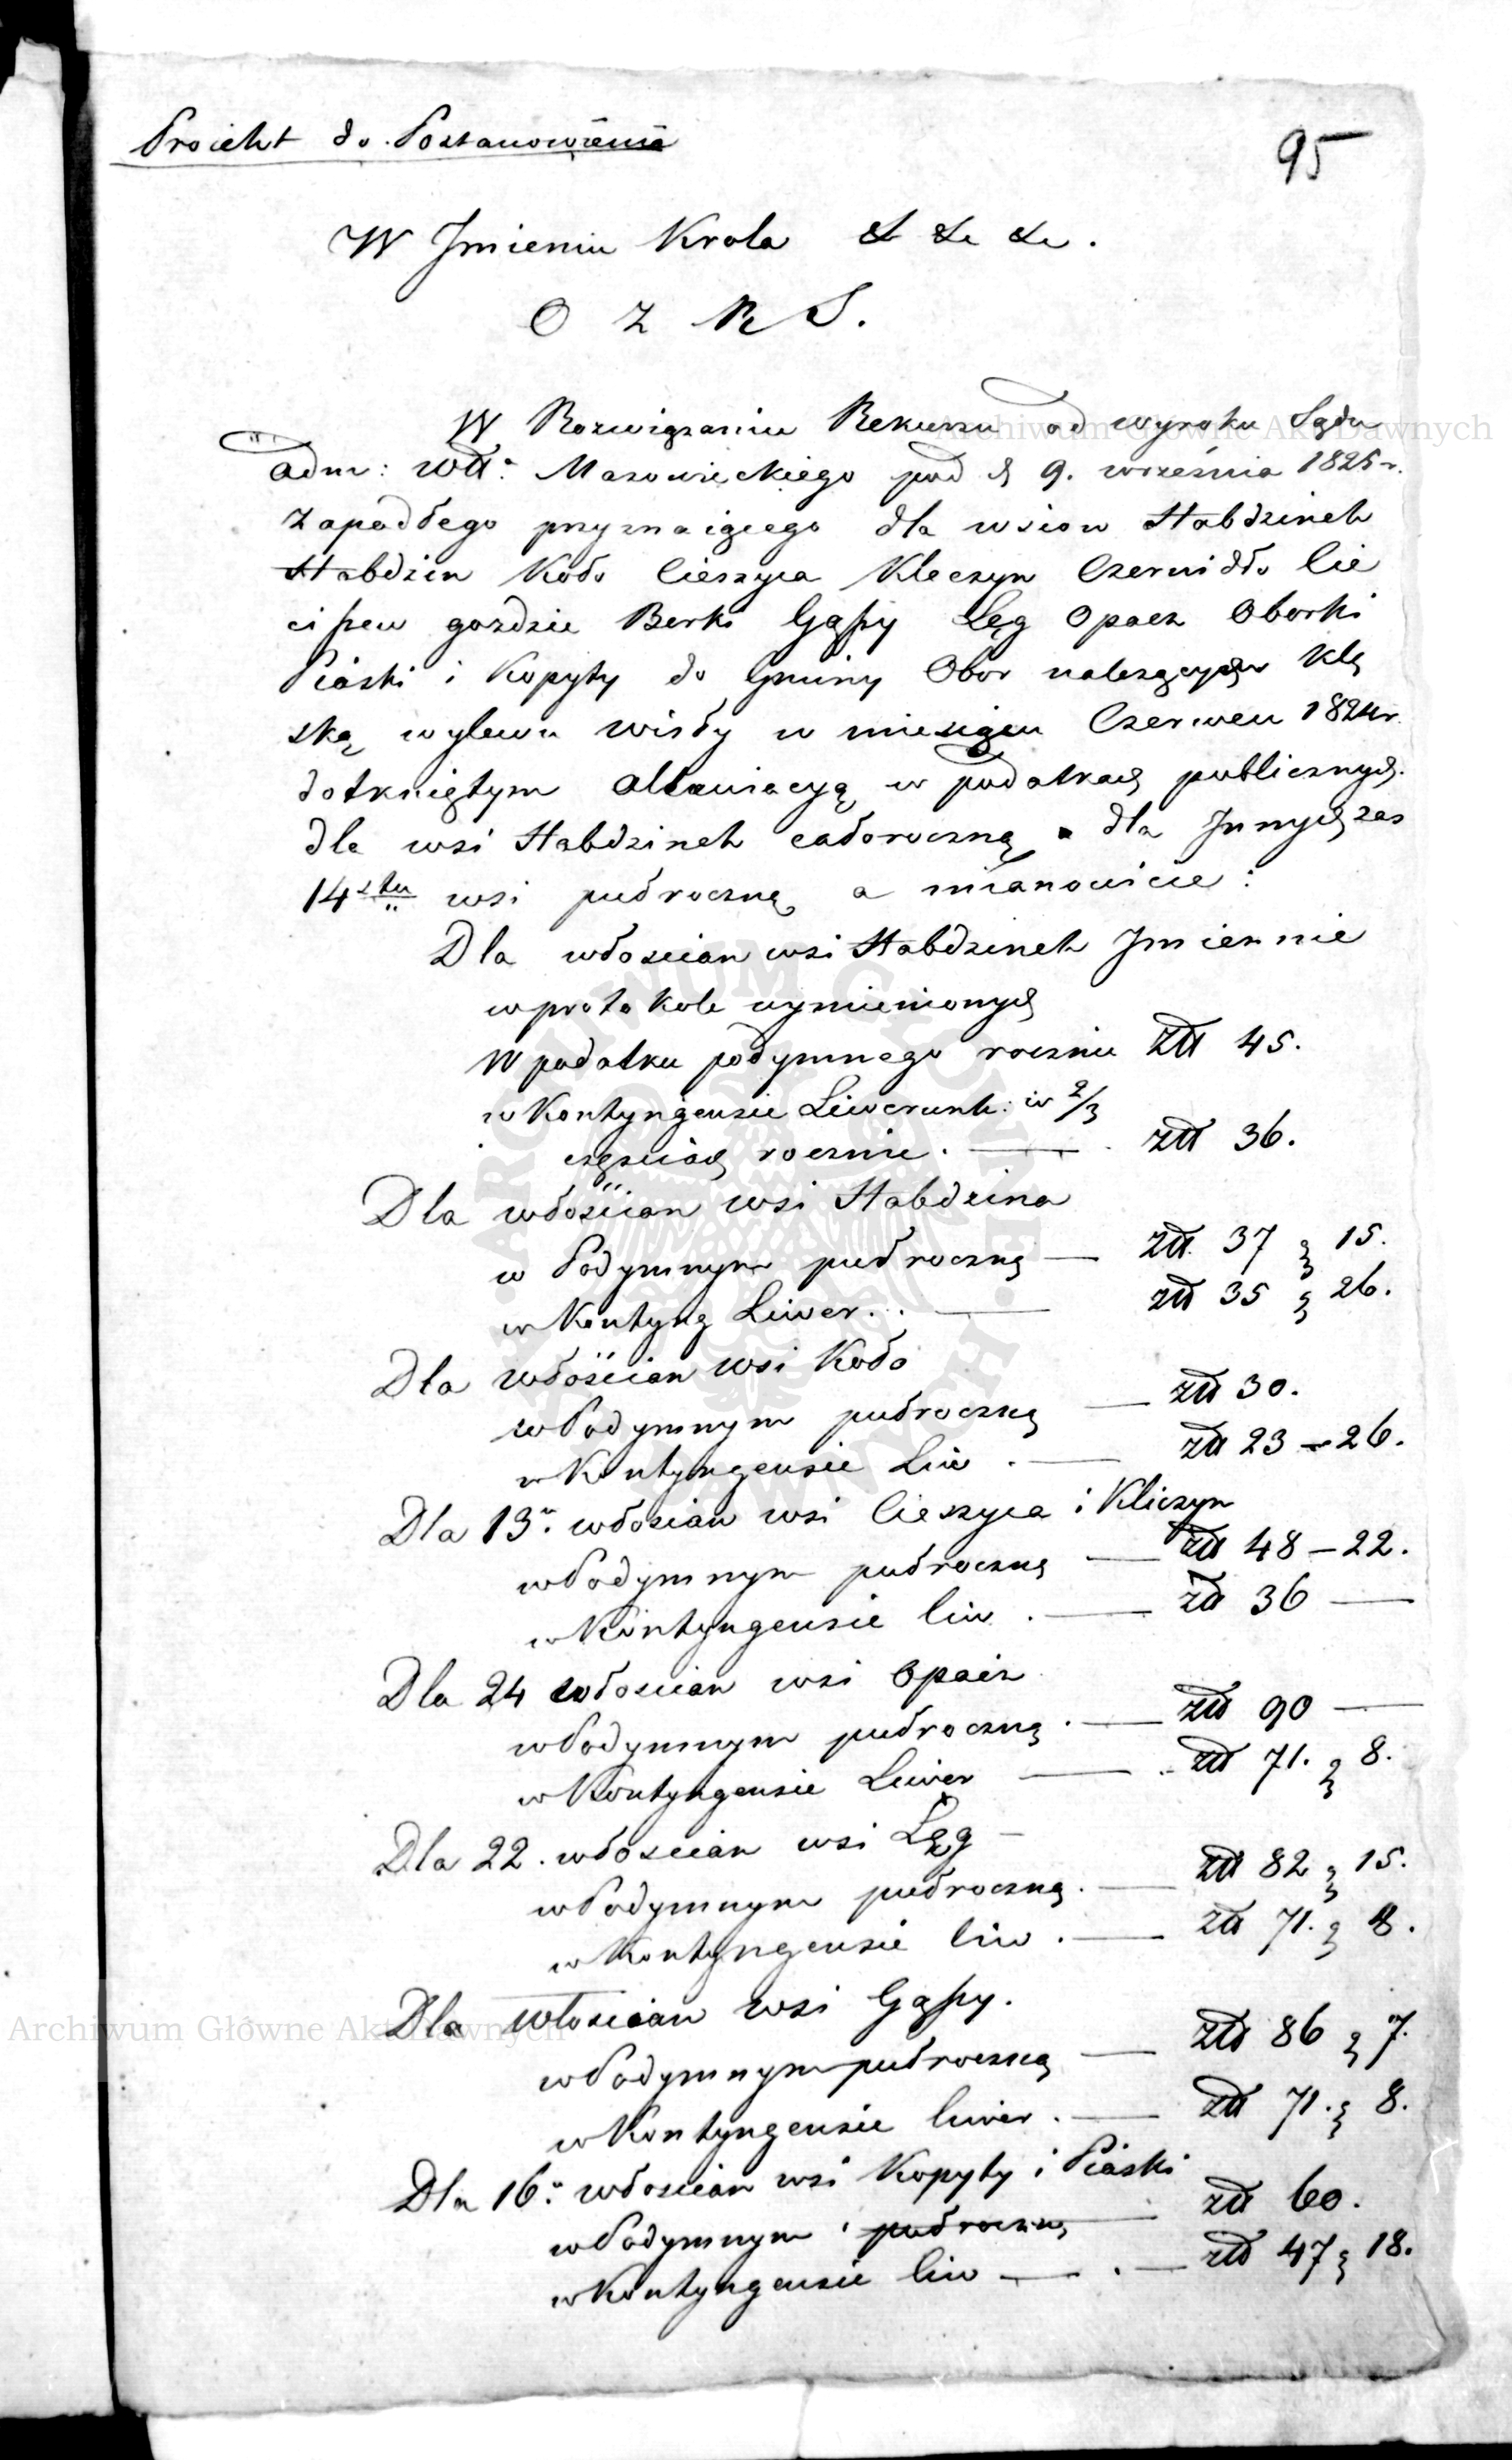 Proiekt do Postanowienia
95
W Jmieniu Krola & &c &c.
O Z R S.
W Rozwiązaniu Rekursu od wyroku Sądu
Adm: Wdt: Mazowieckiego pod d 9. września 1825 r.
Zapadłego przyznaiącego dla wsiow Habdzinek
Habdzin Koło Cieszyca Kleczyn Czernidło Cie
ciszew gozdzie Borki Gąssy Łęg Opacz Oborki
Piaski i Kopyty do Gminy Obor należących klę
ską wylewu Wisły w miesiącu Czerwcu 1824 r.
dotkniętym allewiacyą w podatkach publicznych.
dla wsi Habdzinek całoroczną a dla Jnnych zas
14stu wsi pułroczną a mianowicie:
Dla włoscian wsi Habdzinek Jmiennie
w protokole wymienionych
W podatku podymnego rocznie Złł 45.
w Kontyngensie Liwerunk: w 2/3
częsciach rocznie. — złł 36.
Dla włościan wsi Habdzina
w Podymnym pułroczną — złł. 37 g 15.
w Kontyng Liwer.. — złł 35 g 26.
Dla włościan wsi Koło
w Podymnym pułroczną — złł 30.
w Kontyngensie Liw. — złł 23 – 26.
Dla 13. włoscian wsi Cieszyca i Kliczyn
w Podymnym pułroczną — złł 48 – 22.
w Kontyngensie liw. — złł 36 —
Dla 24 włoscian wsi Opacz
w Podymnym pułroczną. — złł 90 —
w Kontyngensie Liwer — złł 71. g 8.
Dla 22. włoscian wsi Łęg –
w Podymnym pułroczną. — złł 82 g 15.
w Kontyngensie liw. — złł 71. g 8.
Dla Włoscian wsi Gąssy.
w Podymnym pułroczną — złł 86 g 7.
w Kontyngensie liwer. — złł 71. g 8.
Dla 16. włoscian wsi Kopyty i Piaski
w Podymnym pułroczną — złł 60.
w Kontyngensie liw — . — złł 47 g 18.
Archiwum Główne Akt Dawnych
Archiwum Główne Akt Dawnych
ARCHIWUM GŁÓWNE AKT DAWNYCH